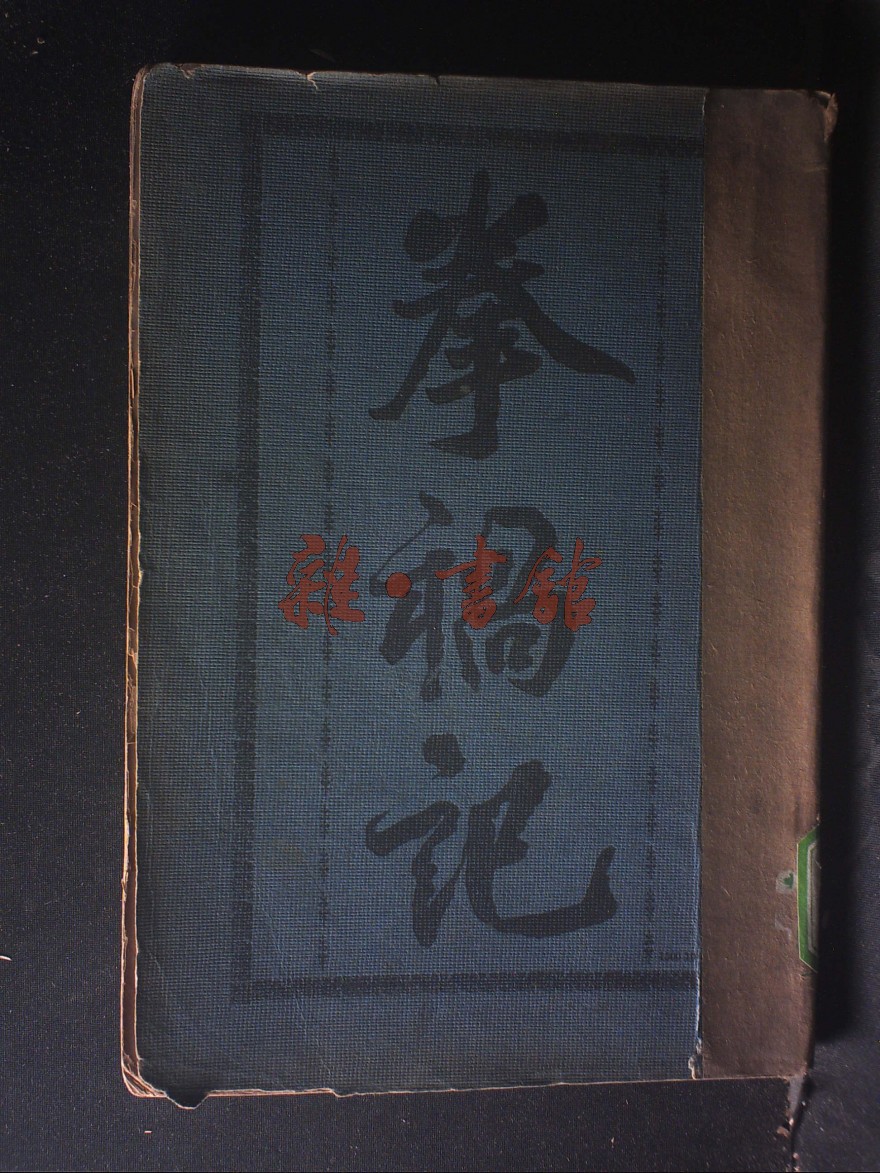 拳禍記
雜·書館